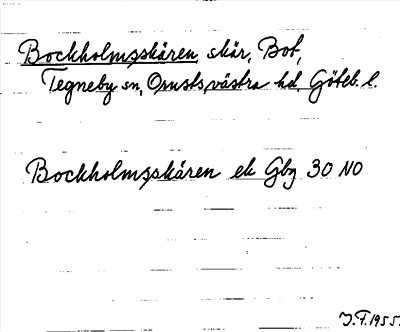 Bockholmsskären, skär, Bot,
Tegneby sn, Orusts västra hd, Göteb. l.
Bockholmsskären ek Gbg 30 NO
J.F. 1955.